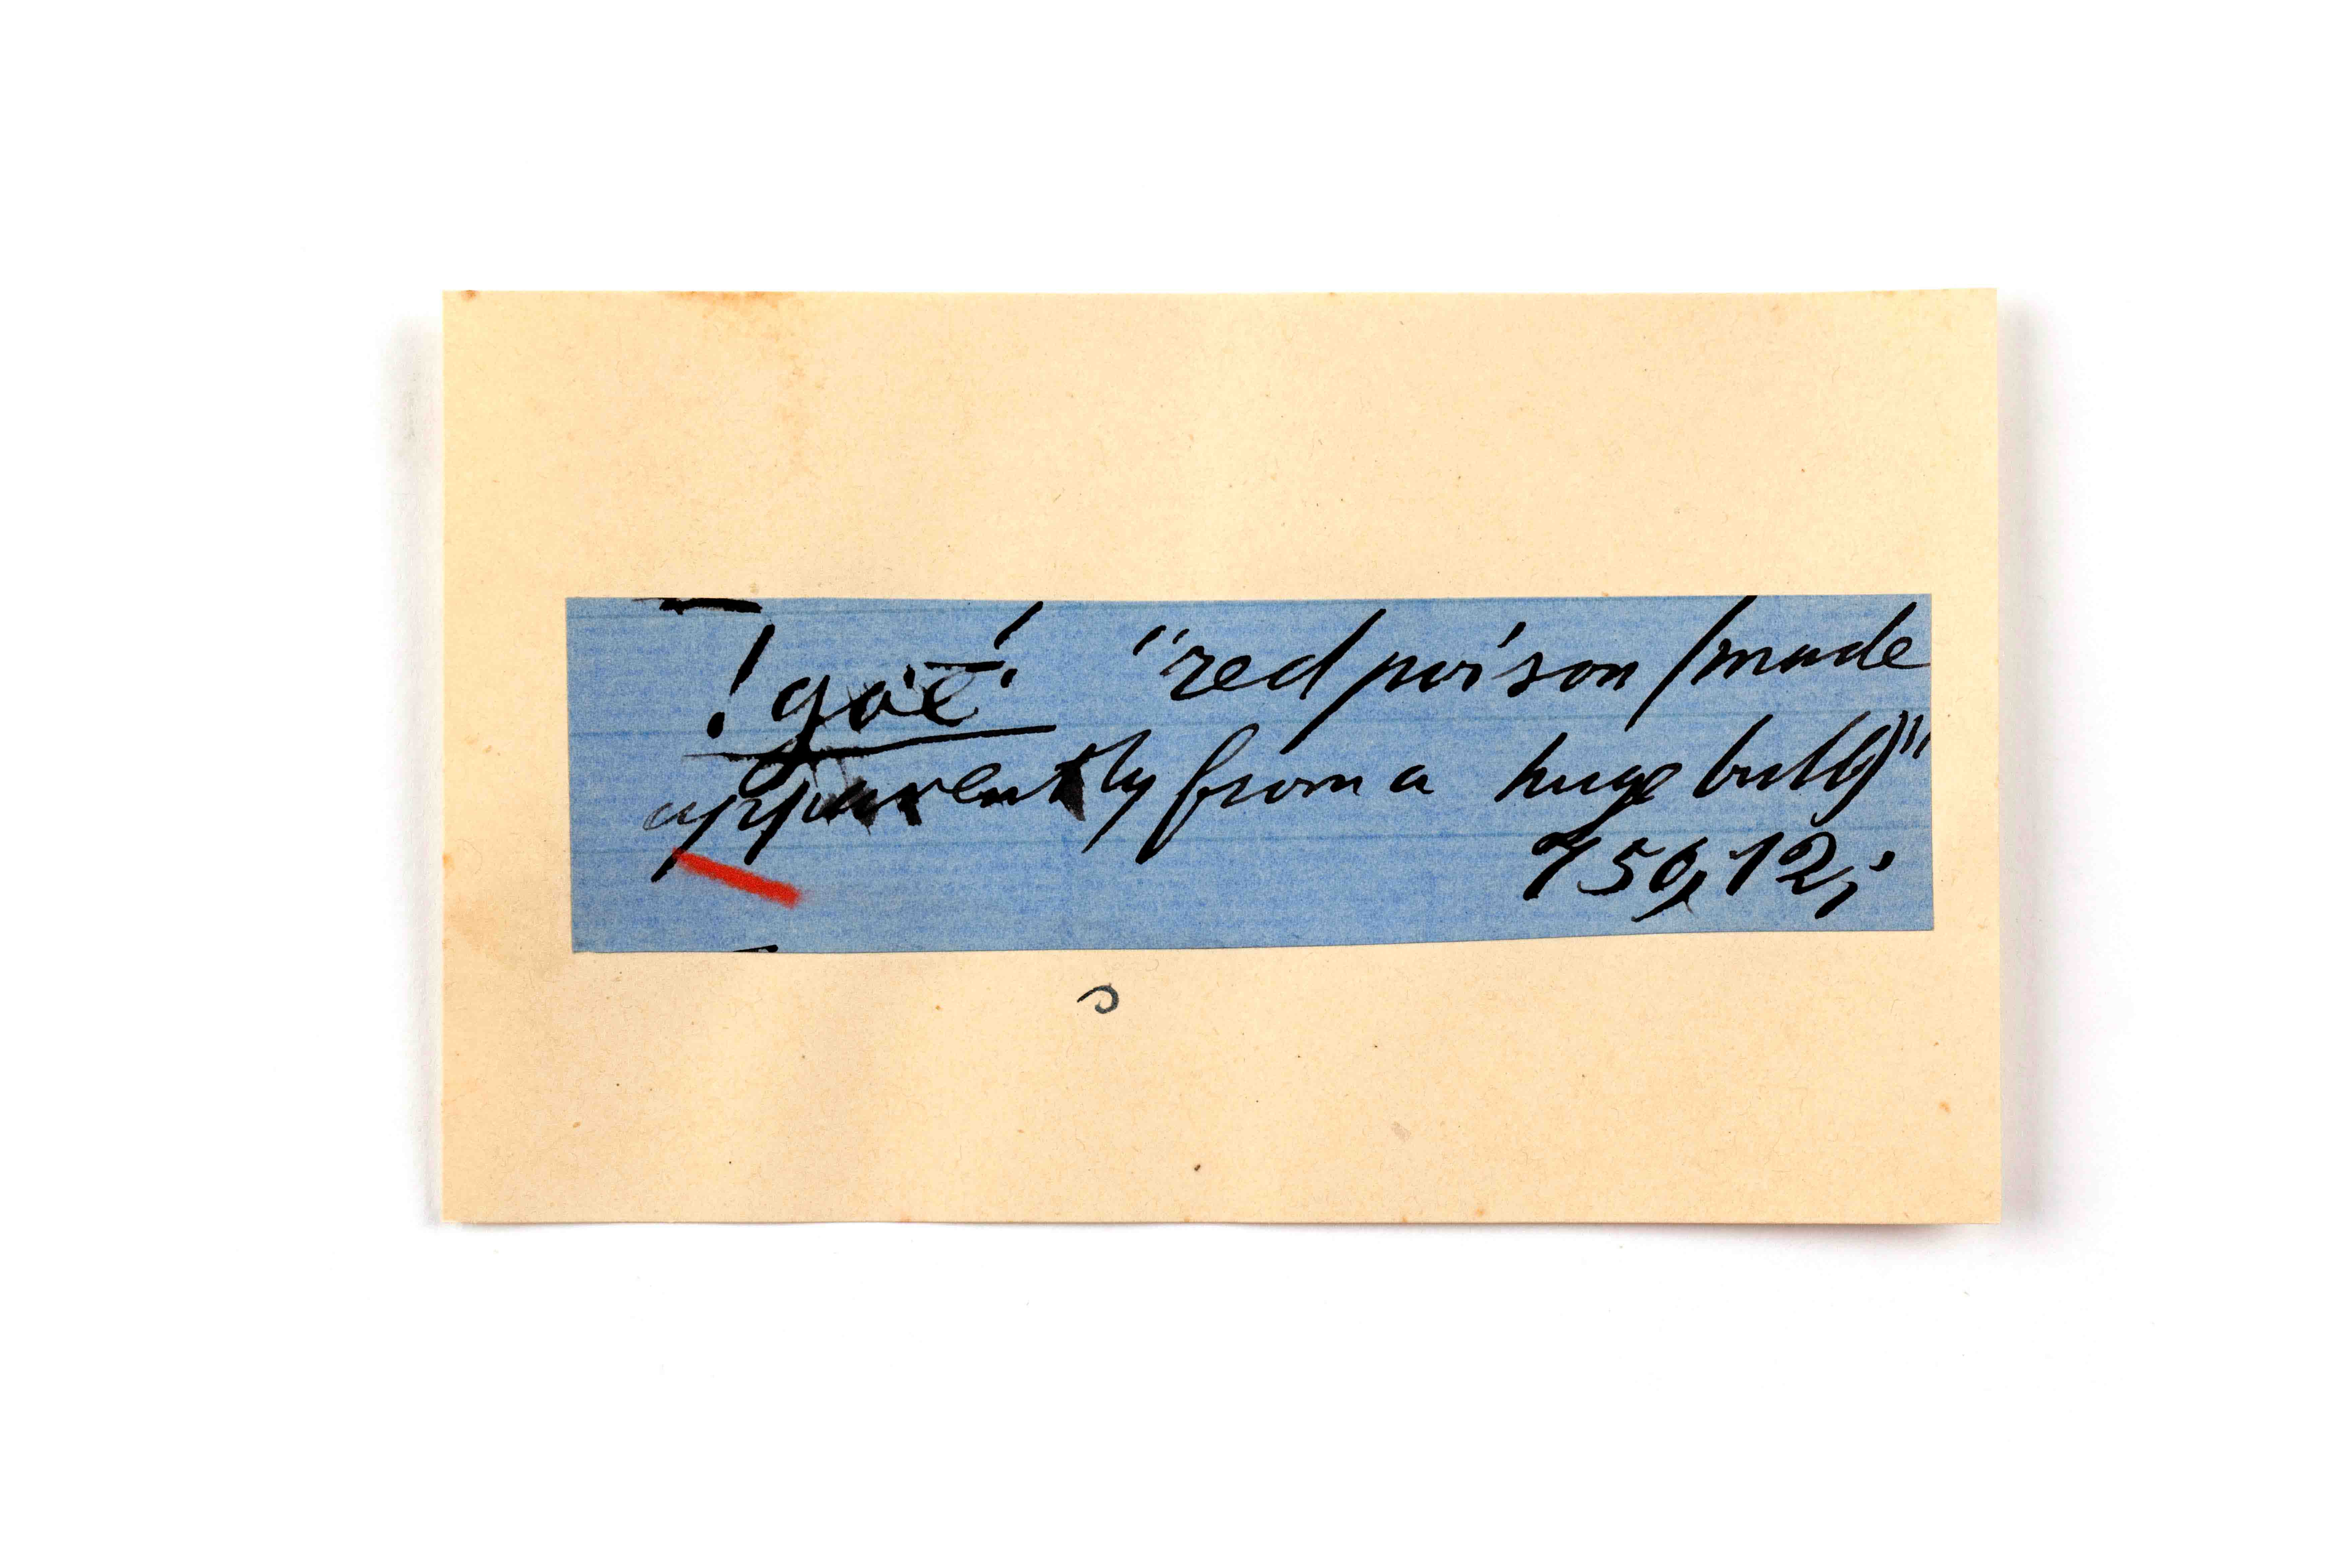 !góē! "red poison (made
apparently from a huge bulb)"
750,12;